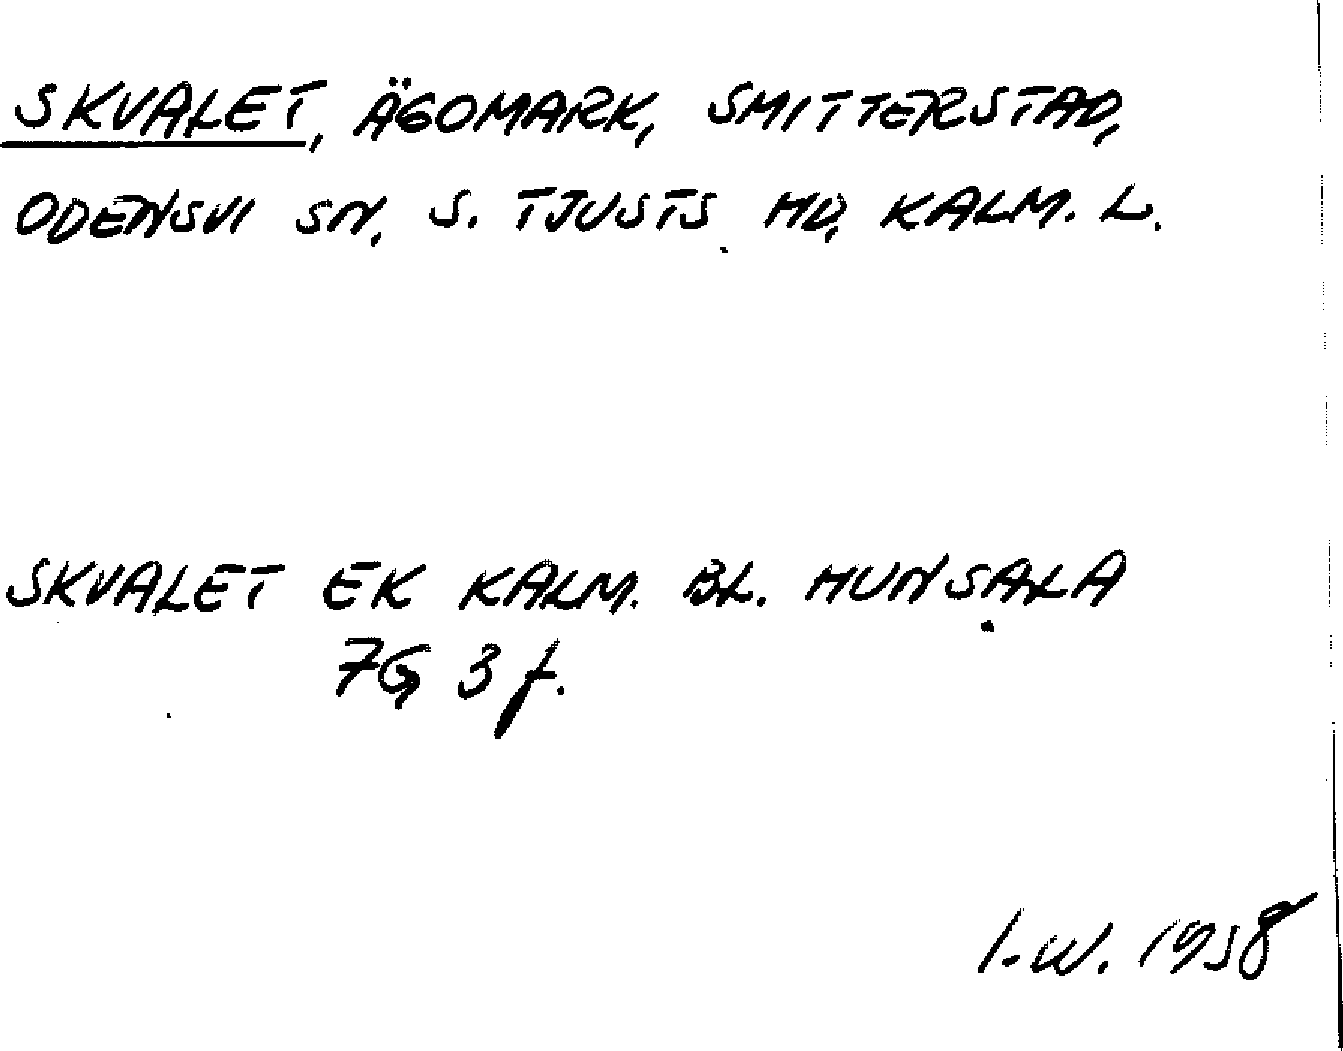 SKVALET, ÄGOMARK, SMITTERSTAD,
ODENSVI SN, S. TJUSTS HD, KALM. L.
SKVALET EK KALM. BL. HUNSALA
7G 3 f.
I-W. 1958